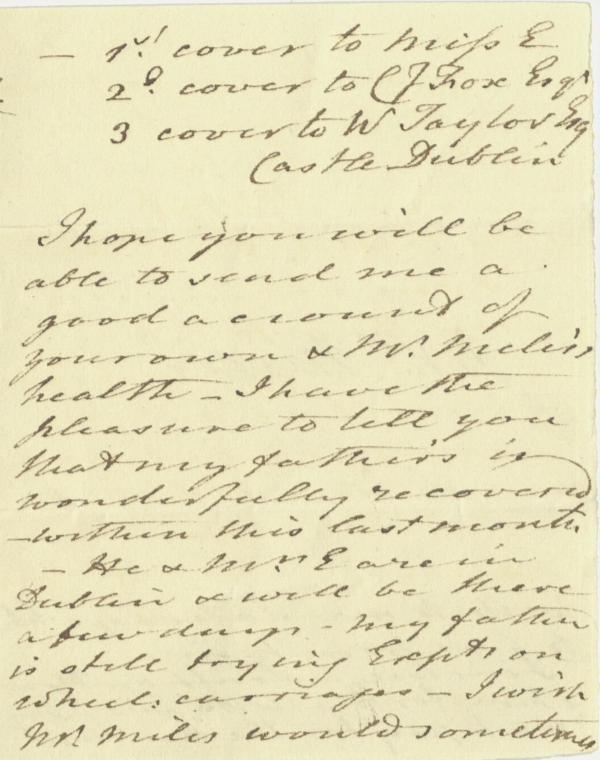 — 1st cover to Miss E
2d. cover to C J Fox Esqr
3 cover to W Taylor Esq
Castle Dublin
I hope you will be
able to send me a
good account of
your own & Mr. Miles's
health – I have the
pleasure to tell you
that my father's is
wonderfully recovered
– within this last month
– He & Mrs E are in
Dublin & will be there
a few days – my father
is still trying Expts on
wheel: carriages – I wish
Mr Miles would sometimes